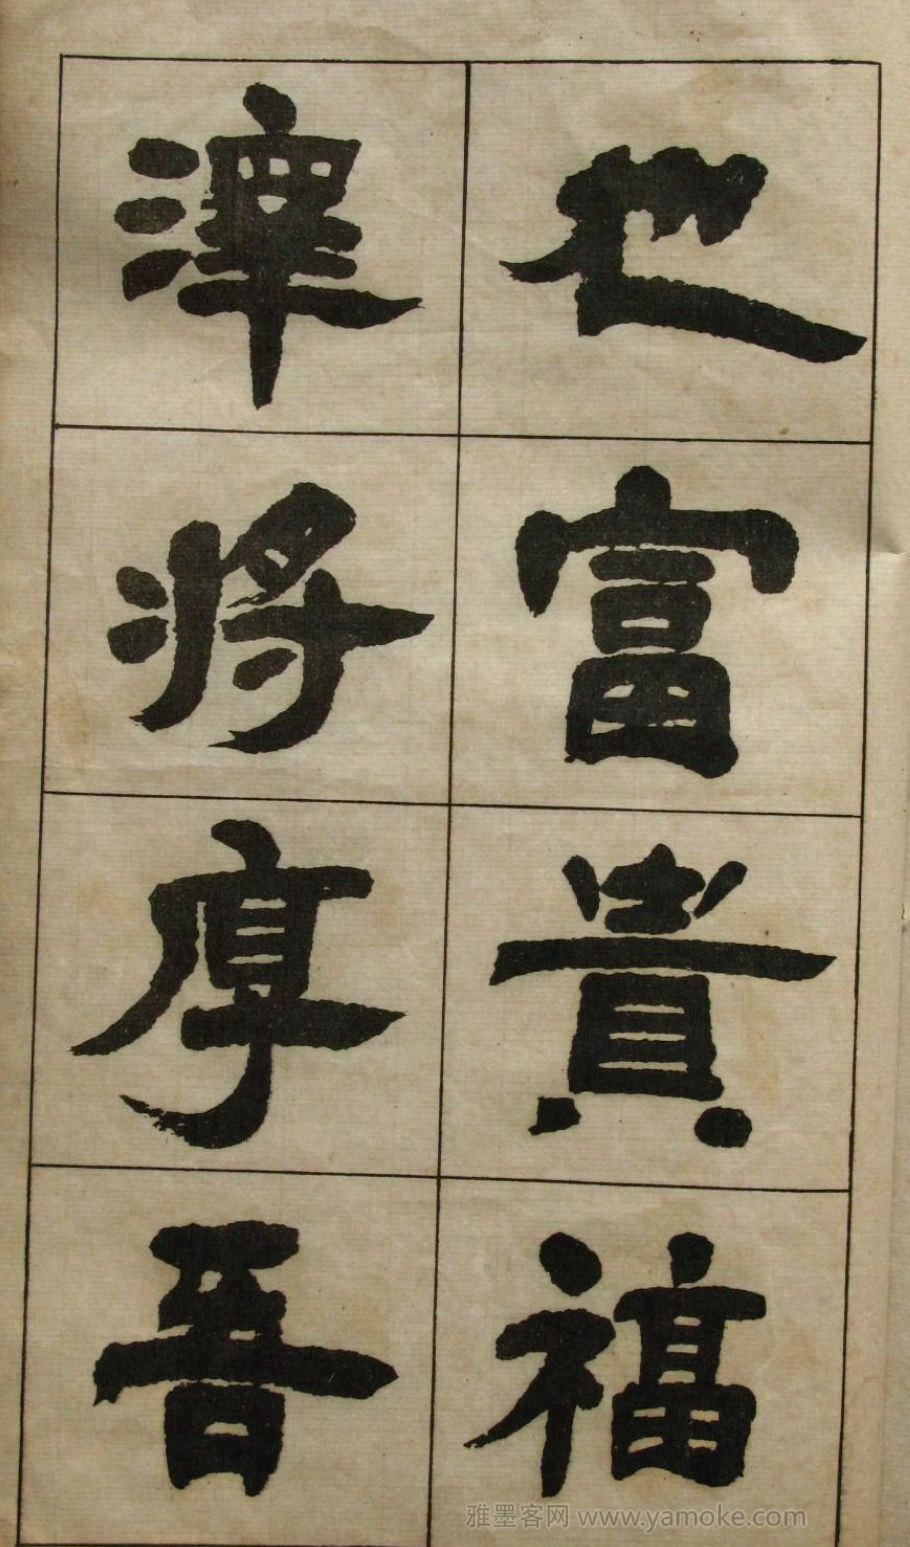 也富貴福
澤將厚吾
雅墨客网 www.yamoke.com